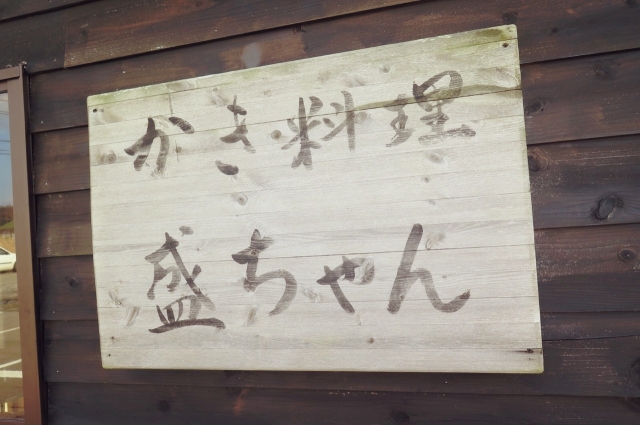 かき料理
盛ちゃん